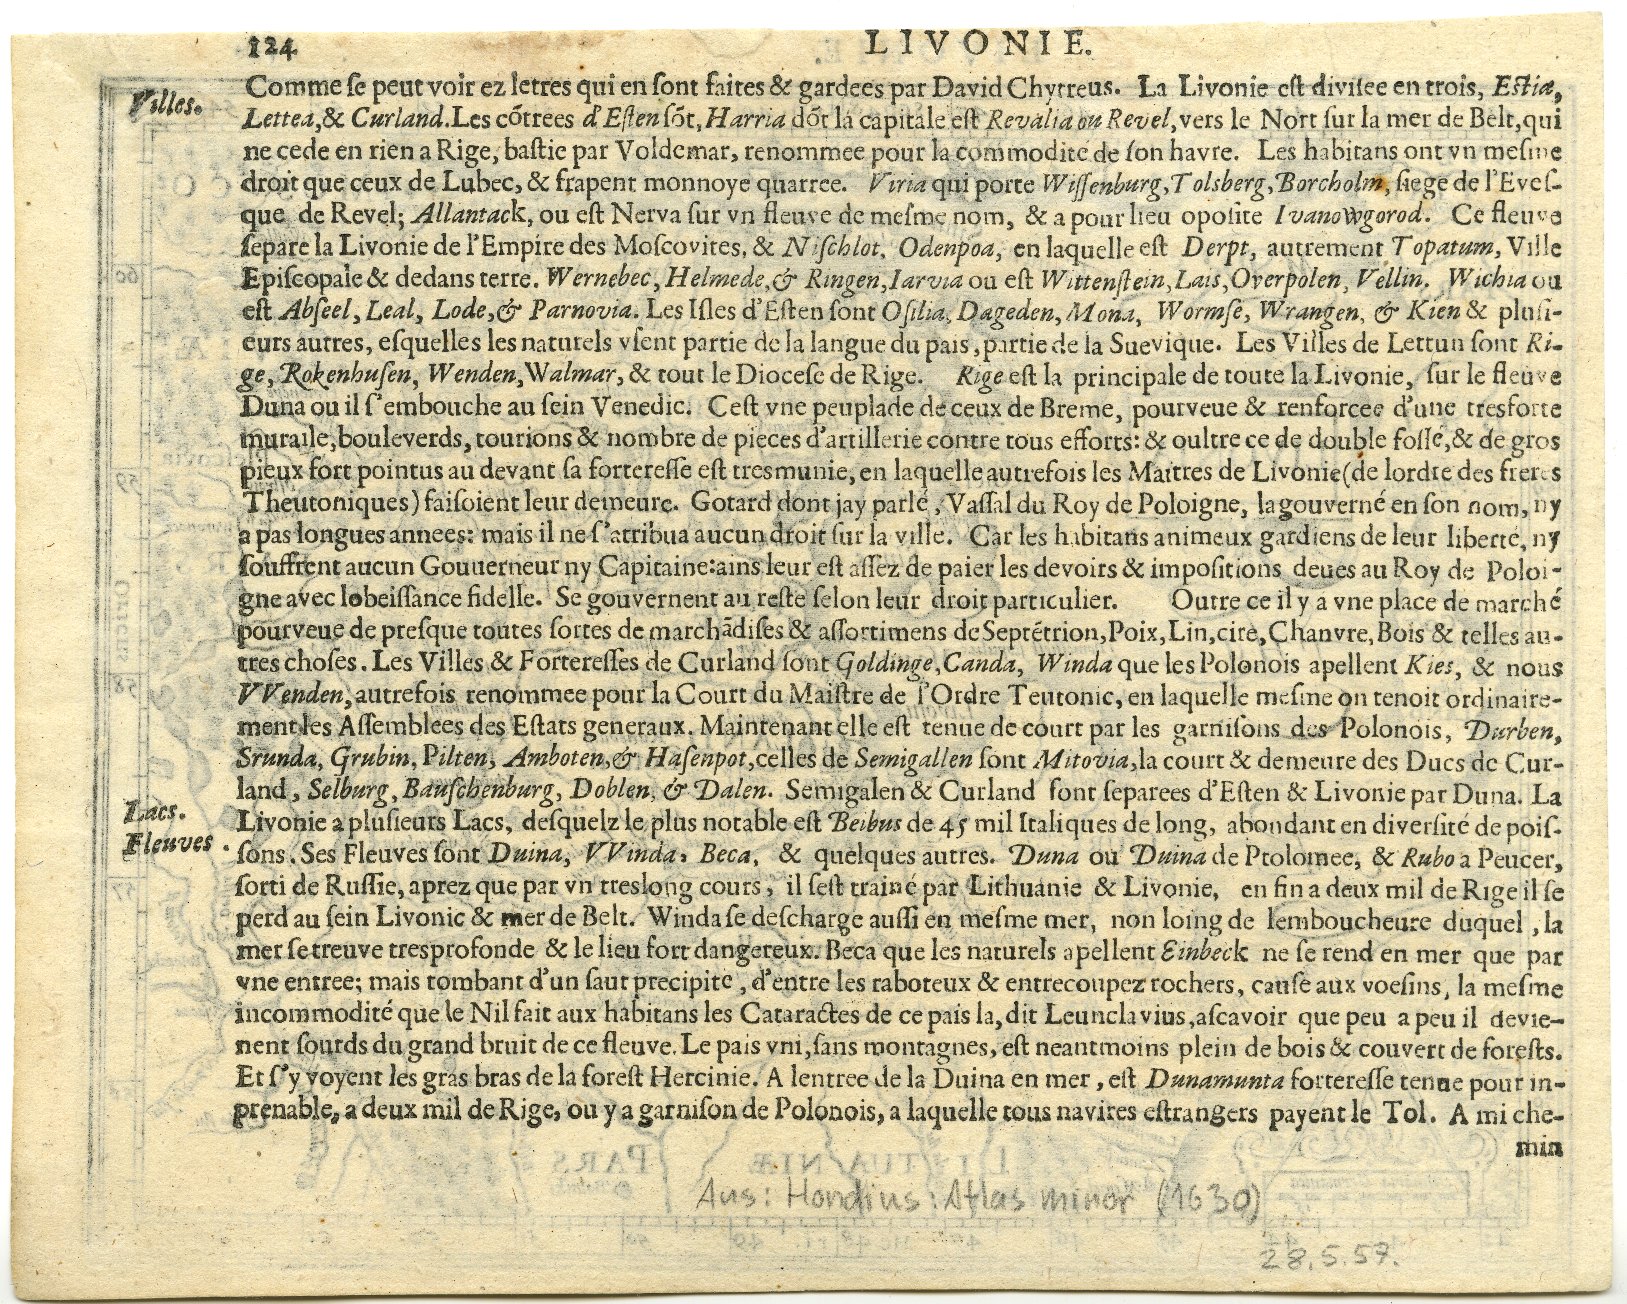 124 LIVONIE.
Villes.
Comme ſe peut voir ez letres qui en ſont faites & gardees par David Chytreus. La Livonie eſt diviſee en trois, Eſtiæ,
Lettea,& Curland.Les cõtrees d'Eſten ſõt, Harria dõt la capitale eſt Revalia ou Revel,vers le Nort ſur la mer de Belt,qui
ne cede en rien a Rige, baſtie par Voldemar, renommee pour la commodité de ſon havre. Les habitans ont vn meſme
droit que ceux de Lubec, & frapent monnoye quarree. Viria qui porte Wiſſenburg,Tolsberg,Borcholm, ſiege de l'Eveſ-
que de Revel; Allantack, ou eſt Nerva ſur vn fleuve de meſme nom, & a pour lieu opoſite Ivanowgorod. Ce fleuve
ſepare la Livonie de l'Empire des Moſcovites, & Niſchlot, Odenpoa, en laquelle eſt Derpt, autrement Topatum, Ville
Epiſcopale & dedans terre. Wernebec, Helmede,& Ringen,Iarvia ou eſt Wittenſtein, Lais,Overpolen, Vellin. Wichia ou
eſt Abſeel, Leal, Lode,& Parnovia. Les Iſles d'Eſten ſont Oſilia, Dageden, Mona, Wormſe, Wrangen, & Kien & pluſi-
eurs autres, eſquelles les naturels vſent partie de la langue du pais, partie de la Suevique. Les Villes de Lettun ſont Ri-
ge, Rokenhuſen, Wenden,Walmar, & tout le Dioceſe de Rige. Rige eſt la principale de toute la Livonie, ſur le fleuve
Duna ou il ſ'embouche au ſein Venedic. Ceſt vne peuplade de ceux de Breme, pourveue & renforcee d'une tresforte
muraile,bouleverds, tourions & nombre de pieces d'artillerie contre tous efforts: & oultre ce de double foſſé,& de gros
pieux fort pointus au devant ſa fortereſſe eſt tresmunie, en laquelle autrefois les Maitres de Livonie (de lordre des freres
Theutoniques) faiſoient leur demeure. Gotard dont jay parlé, Vaſſal du Roy de Poloigne, la gouverné en ſon nom, ny
a pas longues annees: mais il ne ſ'atribua aucun droit ſur la ville. Car les habitans animeux gardiens de leur liberté, ny
ſouffrent aucun Gouuerneur ny Capitaine:ains leur eſt aſſez de paier les devoirs & impoſitions deues au Roy de Poloi-
gne avec lobeiſſance fidelle. Se gouvernent au reſte ſelon leur droit particulier. Outre ce il y a vne place de marché
pourveue de preſque toutes ſortes de marchãdiſes & aſſortimens de Septētrion,Poix, Lin,cire, Chanvre, Bois & telles au-
tres choſes. Les Villes & Fortereſſes de Curland ſont Goldinge,Canda, Winda que les Polonois apellent Kies, & nous
VVenden, autrefois renommee pour la Court du Maiſtre de l'Ordre Teutonic, en laquelle meſme on tenoit ordinaire-
ment les Aſſemblees des Eſtats generaux. Maintenant elle eſt tenue de court par les garniſons des Polonois, Durben,
Srunda, Grubin, Pilten, Amboten,& Haſenpot,celles de Semigallen ſont Mitovia,la court & demeure des Ducs de Cur-
land, Selburg, Bauſchenburg, Doblen, & Dalen. Semigalen & Curland ſont ſeparees d'Eſten & Livonie par Duna. La
Lacs.
Livonie a pluſieurs Lacs, deſquelz le plus notable eſt Beibus de 45 mil Italiques de long, abondant en diverſité de poiſ-
Fleuves.
ſons. Ses Fleuves ſont Duina, VVinda, Beca, & quelques autres. Duna ou Duina de Ptolomee, & Rubo a Peucer,
ſorti de Ruſſie, aprez que par vn treslong cours, il ſeſt trainé par Lithuanie & Livonie, en fin a deux mil de Rige il ſe
perd au ſein Livonic & mer de Belt. Winda ſe deſcharge auſſi en meſme mer, non loing de lemboucheure duquel, la
mer ſe treuve tresprofonde & le lieu fort dangereux. Beca que les naturels apellent Einbeck ne ſe rend en mer que par
vne entree; mais tombant d'un ſaut precipité, d'entre les raboteux & entrecoupez rochers, cauſe aux voeſins, la meſme
incommodité que le Nil fait aux habitans les Cataractes de ce pais la, dit Leunclavius, aſcavoir que peu a peu il devie-
nent ſourds du grand bruit de ce fleuve. Le pais vni, ſans montagnes, eſt neantmoins plein de bois & couvert de foreſts.
Et ſ'y voyent les gras bras de la foreſt Hercinie. A lentree de la Duina en mer, eſt Dunamunta fortereſſe tenue pour in-
prenable, a deux mil de Rige, ou y a garniſon de Polonois, a laquelle tous navires eſtrangers payent le Tol. A mi che-
min
Aus: Hondius: Atlas minor (1630)
28.5.57.